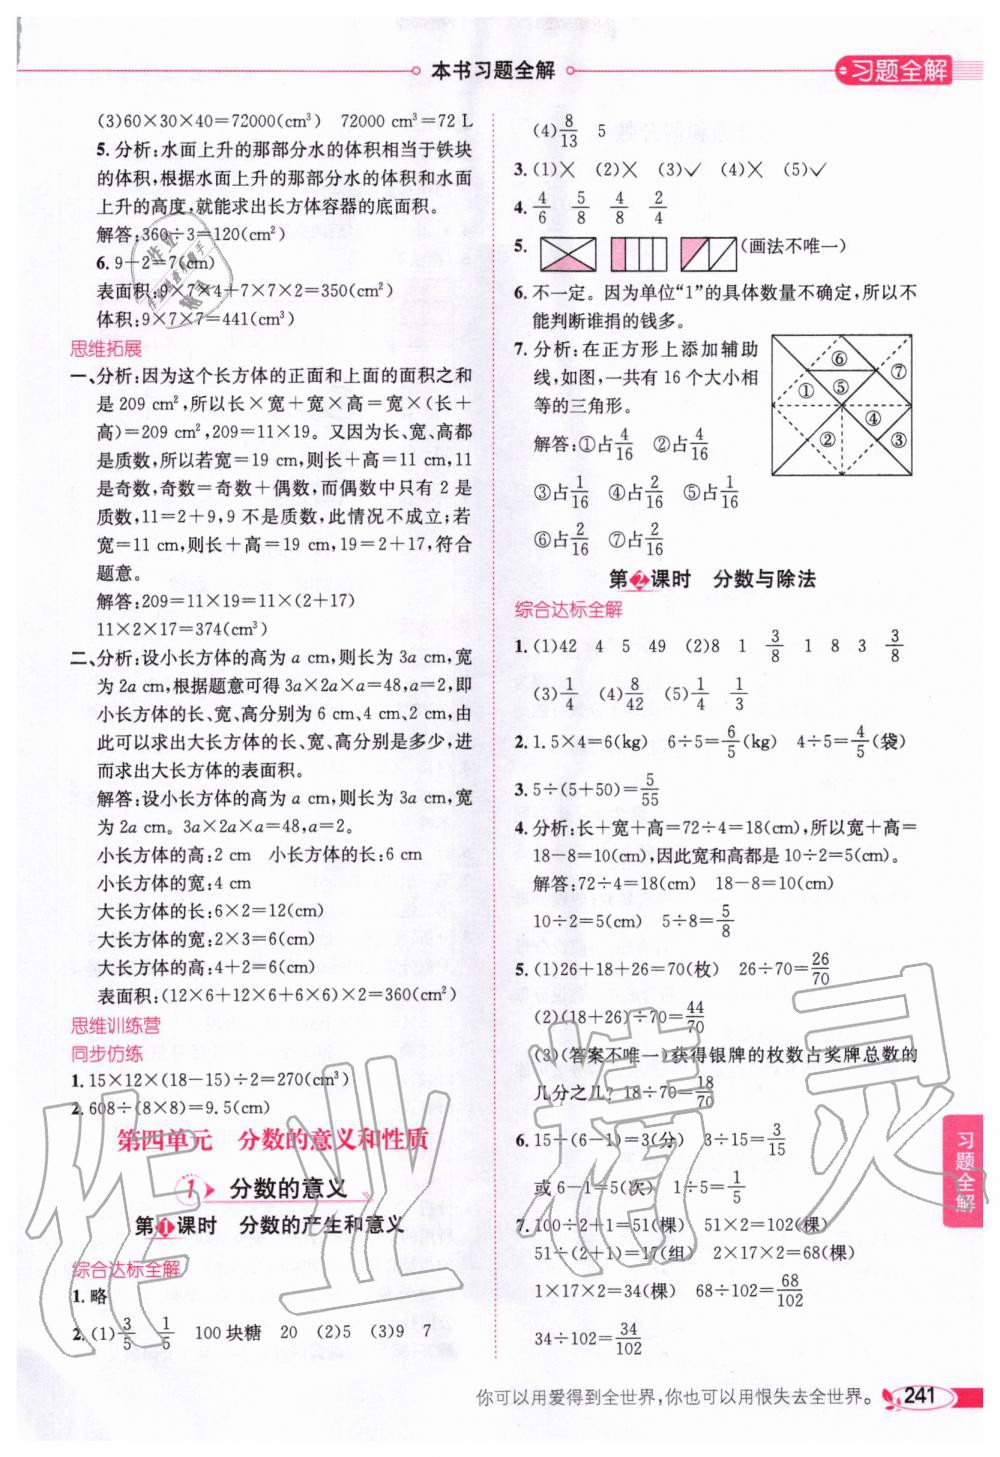 本书习题全解
习题全解
(3)60×30×40=72000(cm³) 72000 cm³=72 L
5.分析:水面上升的那部分水的体积相当于铁块
的体积,根据水面上升的那部分水的体积和水面
上升的高度,就能求出长方体容器的底面积。
解答:360÷3=120(cm²)
6.9-2=7(cm)
表面积:9×7×4+7×7×2=350(cm²)
体积:9×7×7=441(cm³)
思维拓展
一、分析:因为这个长方体的正面和上面的面积之和
是209 cm²,所以长×宽+宽×高=宽×(长+
高)=209 cm²,209=11×19。又因为长、宽、高都
是质数,所以若宽=19 cm,则长+高=11 cm,11
是奇数,奇数=奇数+偶数,而偶数中只有2是
质数,11=2+9,9不是质数,此情况不成立;若
宽=11 cm,则长+高=19 cm,19=2+17,符合
题意。
解答:209=11×19=11×(2+17)
11×2×17=374(cm³)
二、分析:设小长方体的高为a cm,则长为3a cm,宽
为2a cm,根据题意可得3a×2a×a=48,a=2,即
小长方体的长、宽、高分别为6 cm、4 cm、2 cm,由
此可以求出大长方体的长、宽、高分别是多少,进
而求出大长方体的表面积。
解答:设小长方体的高为a cm,则长为3a cm,宽
为2a cm。3a×2a×a=48,a=2。
小长方体的高:2 cm 小长方体的长:6 cm
小长方体的宽:4 cm
大长方体的长:6×2=12(cm)
大长方体的宽:2×3=6(cm)
大长方体的高:4+2=6(cm)
表面积:(12×6+12×6+6×6)×2=360(cm²)
思维训练营
同步仿练
1.15×12×(18-15)÷2=270(cm³)
2.608÷(8×8)=9.5(cm)
第四单元 分数的意义和性质
1 分数的意义
第1课时 分数的产生和意义
综合达标全解
1.略
2.(1)3/5 1/5 100块糖 20 (2)5 (3)9 7
(4)8/13 5
3.(1)× (2)× (3)✓ (4)× (5)✓
4.4/6 5/8 4/8 2/4
5.(画法不唯一)
6.不一定。因为单位“1”的具体数量不确定,所以不
能判断谁捐的钱多。
7.分析:在正方形上添加辅助
线,如图,一共有16个大小相
等的三角形。
解答:①占4/16 ②占4/16
③占1/16 ④占2/16 ⑤占1/16
⑥占2/16 ⑦占2/16
⑥ ⑦
① ⑤
④
② ③
第2课时 分数与除法
综合达标全解
1.(1)42 4 5 49 (2)8 1 3/8 1 8 3 3/8
(3)1/4 (4)8/42 (5)1/4 1/3
2.1.5×4=6(kg) 6÷5=6/5(kg) 4÷5=4/5(袋)
3.5÷(5+50)=5/55
4.分析:长+宽+高=72÷4=18(cm),所以宽+高=
18-8=10(cm),因此宽和高都是10÷2=5(cm)。
解答:72÷4=18(cm) 18-8=10(cm)
10÷2=5(cm) 5÷8=5/8
5.(1)26+18+26=70(枚) 26÷70=26/70
(2)(18+26)÷70=44/70
(3)(答案不唯一)获得银牌的枚数占奖牌总数的
几分之几?18÷70=18/70
6.15÷(6-1)=3(分) 3÷15=3/15
或6-1=5(次) 1÷5=1/5
7.100÷2+1=51(棵) 51×2=102(棵)
51÷(2+1)=17(组) 2×17×2=68(棵)
1×17×2=34(棵) 68÷102=68/102
34÷102=34/102
习题全解
你可以用爱得到全世界,你也可以用恨失去全世界。
241
作业精灵